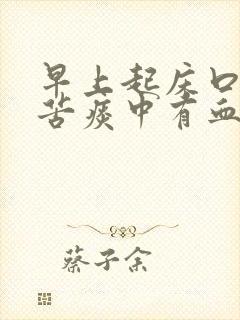 早上起床口
苦痰中有血
蔡子余